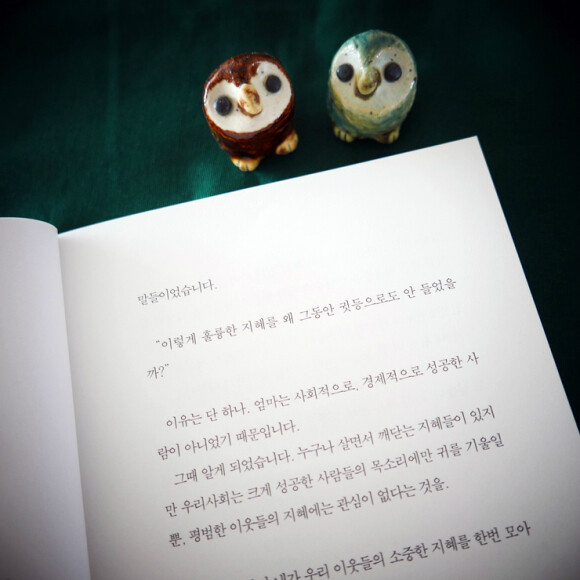 말들이었습니다.
“이렇게 훌륭한 지혜를 왜 그동안 귓등으로도 안 들었을
까?”
이유는 단 하나. 엄마는 사회적으로, 경제적으로 성공한 사
람이 아니었기 때문입니다.
그때 알게 되었습니다. 누구나 살면서 깨닫는 지혜들이 있지
만 우리사회는 크게 성공한 사람들의 목소리에만 귀를 기울일
뿐, 평범한 이웃들의 지혜에는 관심이 없다는 것을.
내가 우리 이웃들의 소중한 지혜를 한번 모아